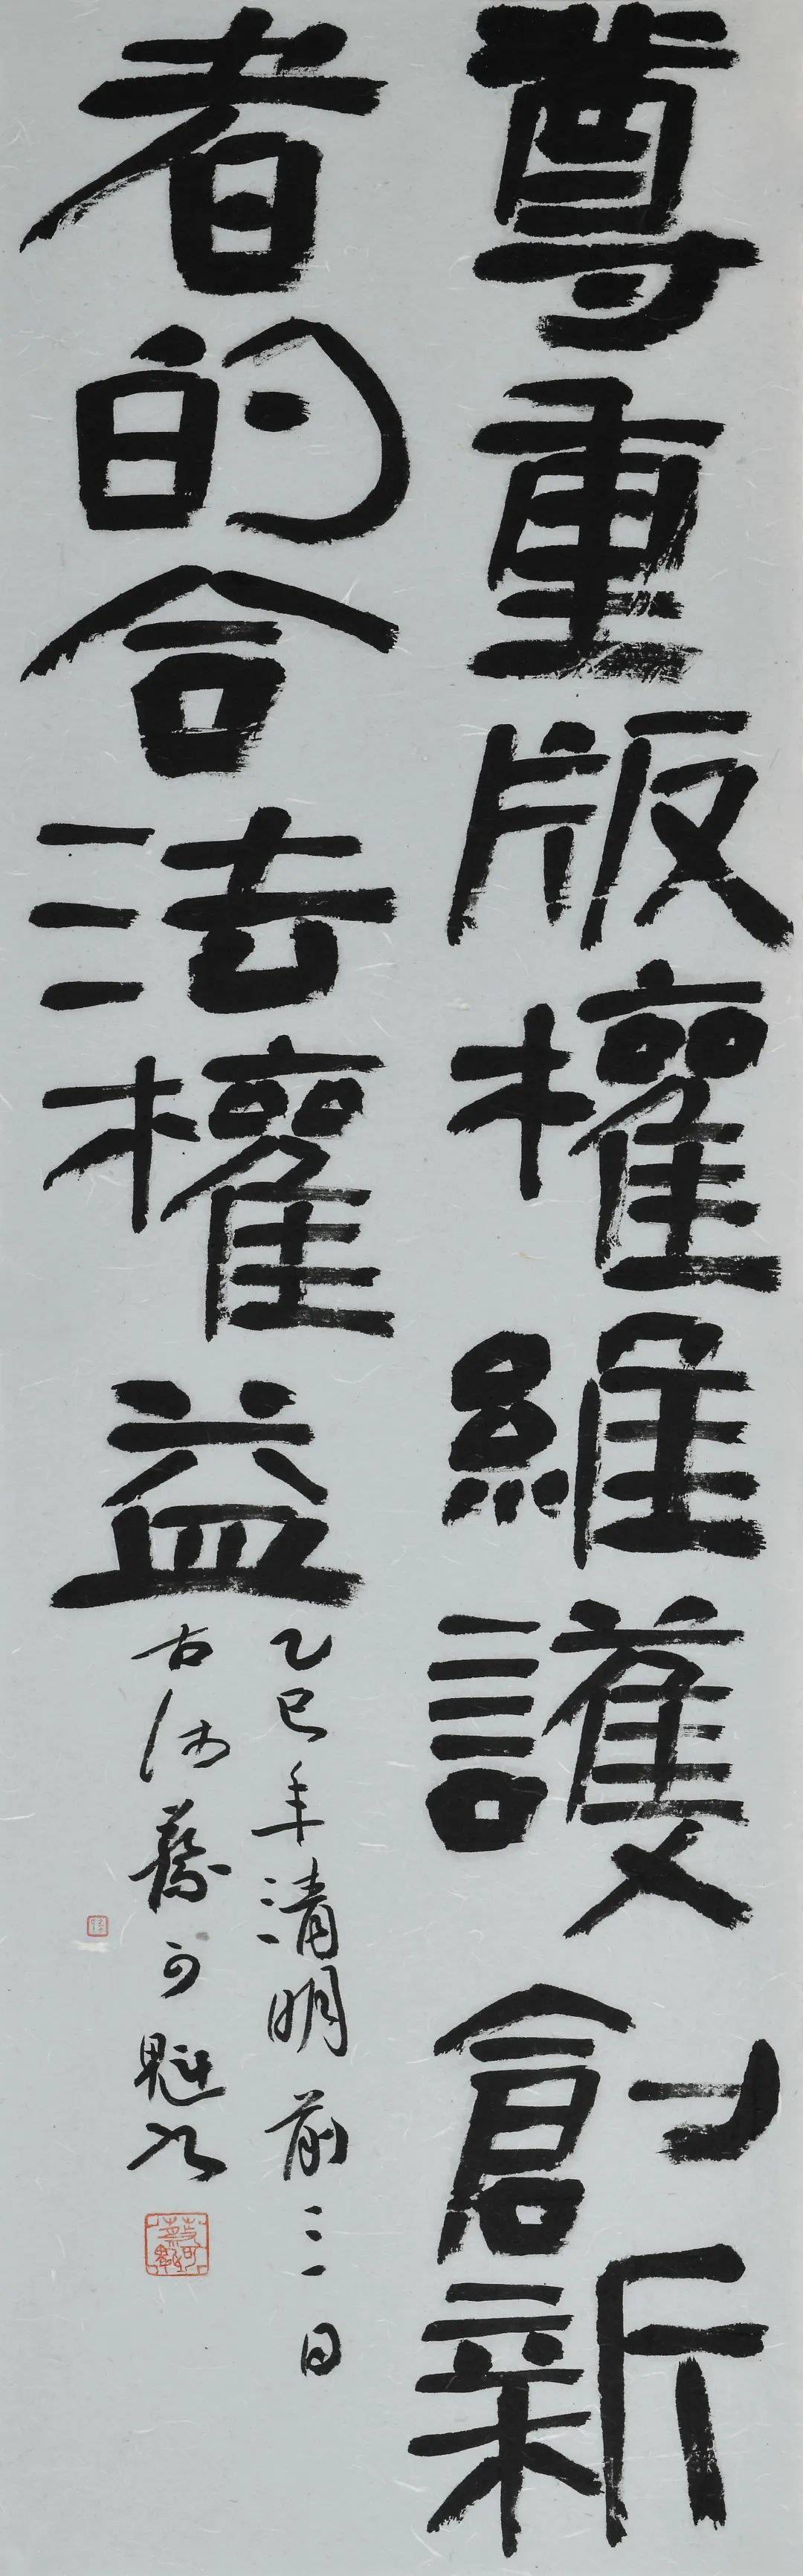 尊重版權維護創新
者的合法權益
乙巳年清明前三日
古沛蔡可魁书